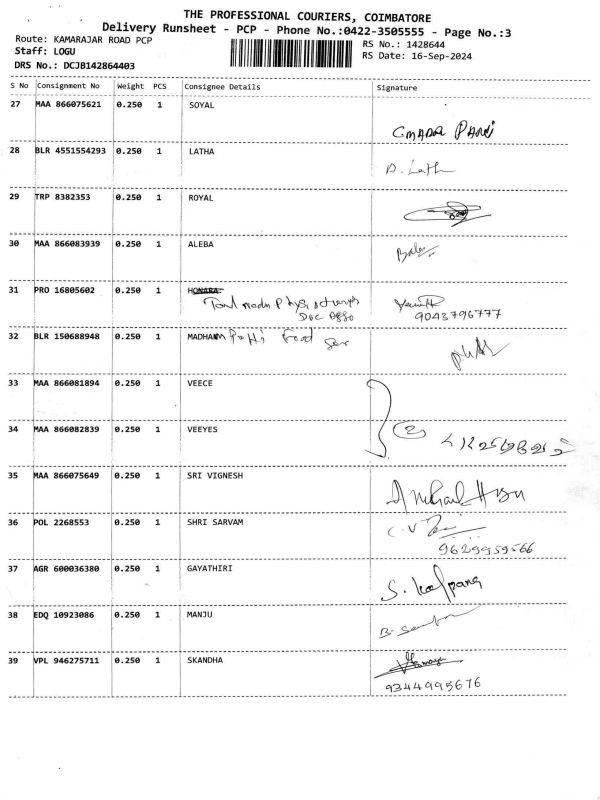 THE PROFESSIONAL COURIERS, COIMBATORE
Delivery Runsheet - PCP - Phone No.:0422-3505555 - Page No.:3
Route: KAMARAJAR ROAD PCP
RS No.: 1428644
Staff: LOGU
RS Date: 16-Sep-2024
DRS No.: DCJB142864403
S No Consignment No Weight PCS Consignee Details Signature
27 MAA 866075621 0.250 1 SOYAL
28 BLR 4551554293 0.250 1 LATHA
29 TRP 8382353 0.250 1 ROYAL
30 MAA 866083939 0.250 1 ALEBA
31 PRO 16805602 0.250 1
9043796777
32 BLR 150688948 0.250 1 MADHAM Food
33 MAA 866081894 0.250 1 VEECE
34 MAA 866082839 0.250 1 VEEYES
35 MAA 866075649 0.250 1 SRI VIGNESH
36 POL 2268553 0.250 1 SHRI SARVAM C.V
9629959566
37 AGR 600036380 0.250 1 GAYATHIRI
S. Kalpana
38 EDQ 10923086 0.250 1 MANJU
39 VPL 946275711 0.250 1 SKANDHA
9344995676